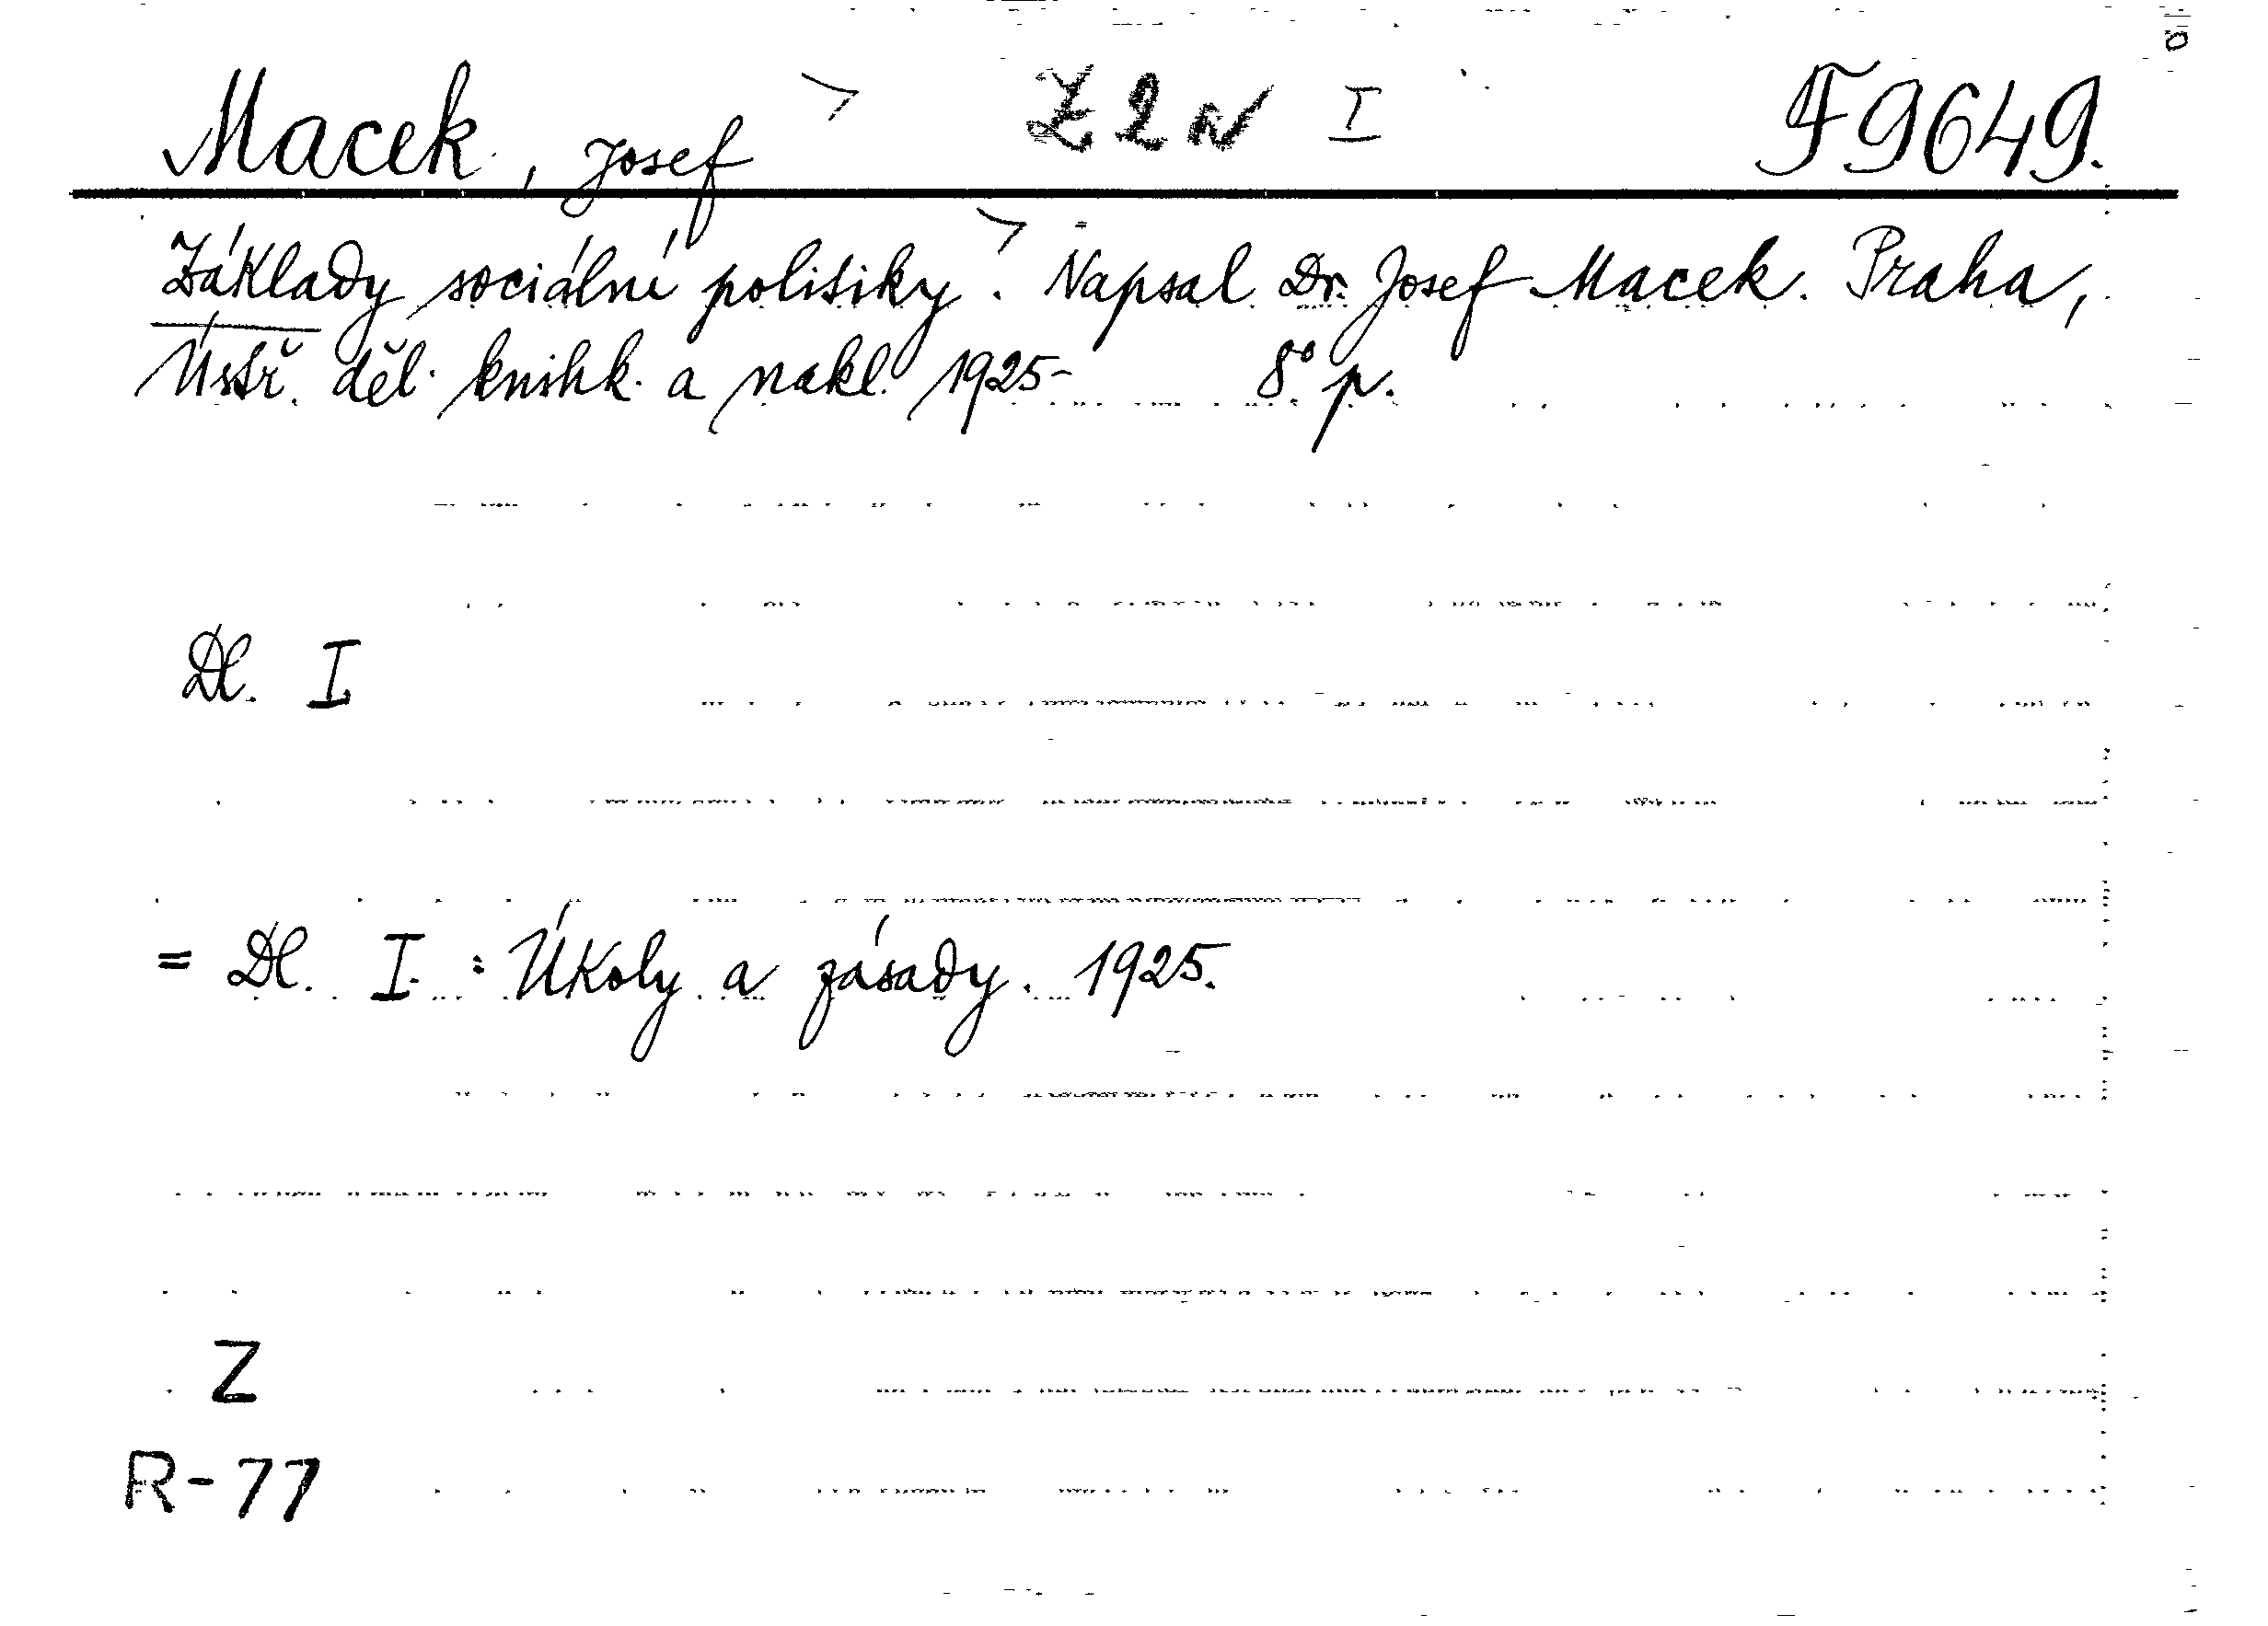 Macek, Josef Z 2 N I F 9649.
Základy sociální politiky. Napsal Dr. Josef Macek. Praha,
Ústř. děl. knihk. a nakl. 1925- 8° p.
Dl. I
= Dl. I. : Úkoly a zásady. 1925.
Z
R-77